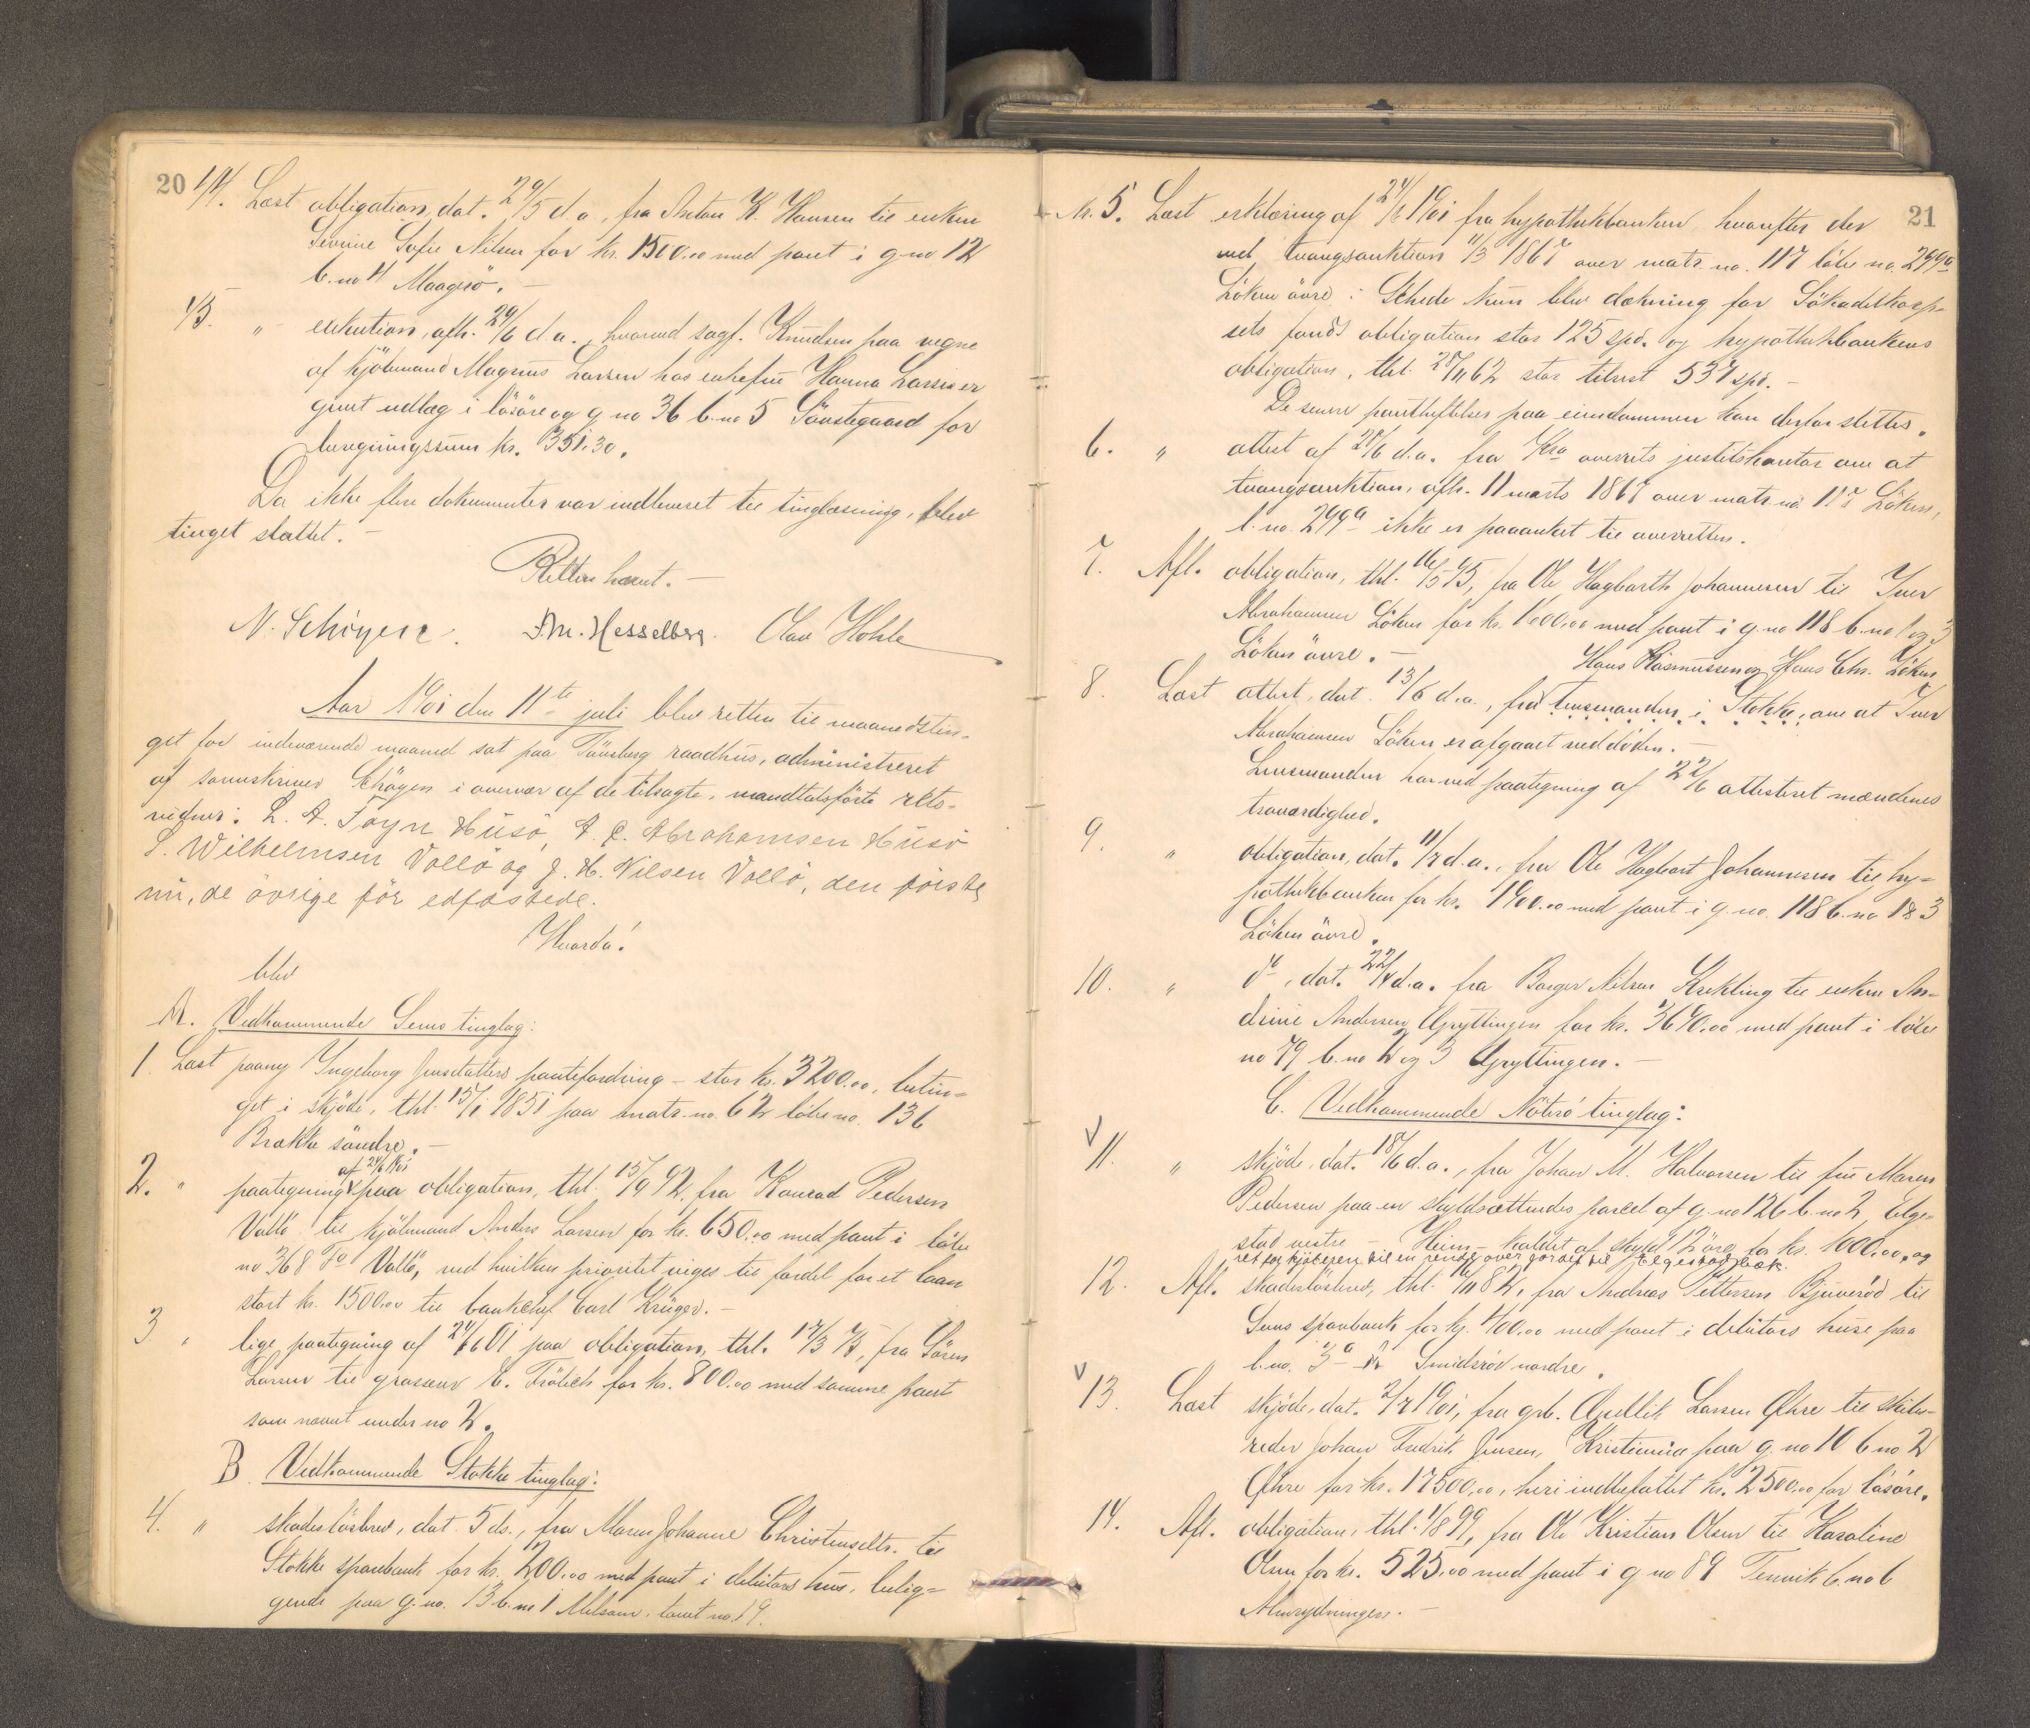 20
14. Læst obligation, dat. 29/5 d.a., fra Anton K. Hansen til enken
Severine Sofie Nilsen for kr. 1500.00 med pant i g.no 12
b.no 4 Maagerö. -
15. " execution, afh. 29/6 d.a., hvorved sagf. Knudsen paa vegne
af kjöbmand Magnus Larsen hos enkefru Hanna Larsiser
gjort udlæg i lösöre og g.no 36 b.no 5 Sövstegaard for
beregningssum kr. 351.30.
Da ikke flere dokumenter var indleveret til tinglæsning, blev
tinget sluttet. -
Retten hævet. -
N. Schöyen. Fr. M. Hesselberg. Olav Hohle
Aar 1901 den 11te juli blev retten til maanedstin-
get for indeværende maaned sat paa Tönsberg raadhus, administreret
af sorenskriver Schöyen i overvær af de tilsagte, mandtalsförte rets-
vidner: L. A. Foyn Husö, A. C. Abrahamsen Husö
S. Wilhelmsen Vallö og J. H. Nilsen Vallö, den förste
nu, de övrige för edfæstede.
Hvorda!
blev
A. Vedkommende Sems tinglag:
1. Læst paany Ingeborg Jensdatters pantefordring - stor kr. 3200.00, betin-
get i skjöde, thl. 15/1 1851 paa matr. no. 62 löbe no. 136
Brække söndre. -
2. " paategning af 24/6 1901 paa obligation, thl. 15/9 92, fra Konrad Pedersen
Vallö til kjöbmand Anders Larsen for kr. 650.00 med pant i löbe
no 368 Fa Vallö, ved hvilken prioritet viges til fordel for et laan
stort kr. 1500.00 til bankchef Carl Krüger. -
3. " lige paategning af 24/6 01 paa obligation, thl. 17/3 75, fra Sören
Larsen til grosserer C. Frölich for kr. 800.00 med samme pant
som nævnt under no 2.
B. Vedkommende Stokke tinglag:
4. " skadeslösbrev, dat. 5 ds., fra Maren Johanne Christensdtr. til
Stokke sparebank for kr. 200.00 med pant i debitors hus, belig-
gende paa g.no. 13 b.no 1 Melsom, tomt no. 19.
21
No. 5. Læst erklæring af 24/6 1901 fra hypothekbanken, hvorefter der
ved tvangsauktion 11/3 1867 over matr. no. 117 löbe no. 299a
Löken övre i Skhede kun blev dækning for Sökadetkorp-
sets fonds obligation stor 125 spd. og hypothekbankens
obligation, thl. 28/11 62 stor tilrest 537 spd. -
De senere pantheftelser paa eiendommen kan derfor slettes.
6. " attest af 28/6 d.a. fra Kra overrets justitskontor om at
tvangsauktion, afh. 11 marts 1867 over matr. no. 117 Löken,
l. no. 299a ikke er paaanket til overretten.
7. Afl. obligation, thl. 16/5 95, fra Ole Hagbarth Johannesen til Iver
Abrahamsen Löken for kr. 1600.00 med pant i g.no 118 b.no 1 og 3
Löken övre. -
Hans Rasmussen og Hans Chr. Löken
8. Læst attest, dat. 13/6 d.a., fra lensmanden i Stokke, om at Iver
Abrahamsen Löken er afgaaet ved döden. -
Lensmanden har ved paategning af 22/6 attesteret mændenes
troværdighed.
9. " obligation, dat. 11/7 d.a., fra Ole Hagbart Johannesen til hy-
pothekbanken for kr. 1900.00 med pant i g.no. 118 b.no 1 & 3
Löken övre.
10. " do, dat. 22/4 d.a. fra Borger Nilsen Krekling til enken An-
drine Andersen Gryttingen for kr. 3690.00 med pant i löbe
no 79 b.no 2 og 3 Gryttingen. -
C. Vedkommende Nöterö tinglag:
V 11. " skjöde, dat. 18/6 d.a., fra Johan M. Halvorsen til fru Maren
Pedersen paa en skyldsættendes parcel af g.no 126 b.no 2, Elge-
stad vestre - Heim - kaldet af skyld 12 öre for kr. 1000.00, og
ret for kjöberen til en rende over jordet til Elgestadbæk.
12. Afl. skadeslösbrev, thl. /11 82, fra Andreas Pettersen Bjuveröd til
Sems sparebank for kr. 400.00 med pant i debitors huse paa
l.no. 3a Smidsröd nordre.
V 13. Læst skjöde, dat. 2/7 1901, fra grb. Opellik Larsen Ohre til skibs-
reder Johan Fredrik Jensen, Kristiania paa g.no 10 b.no 2
Ohre for kr. 17500.00, heri indbefattet kr. 2500.00 for lösöre.
14. Afl. obligation, thl. 1/8 99, fra Ole Kristian Olsen til Karoline
Olsen for kr. 525.00 med pant i g.no 89 Tenvik b.no 6
Almrydningen. -